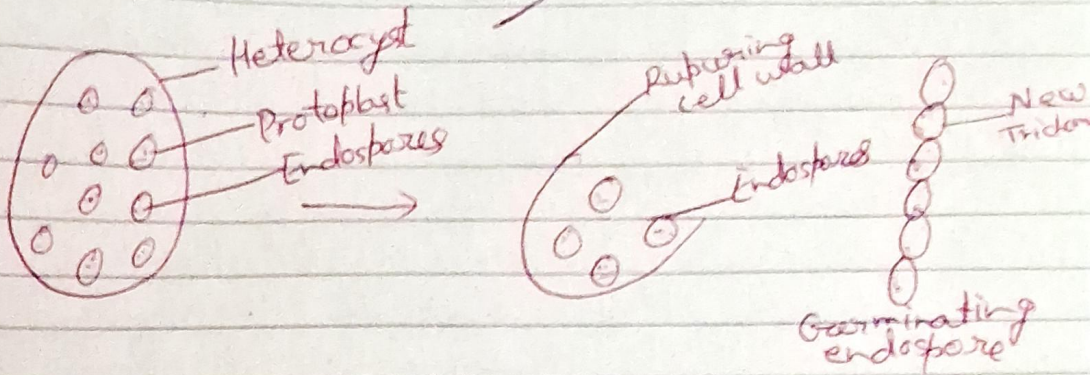 Heterocyst
Protoplast
Endospores
Rupturing
cell wall
Endospores
New
Trichom
Germinating
endospore